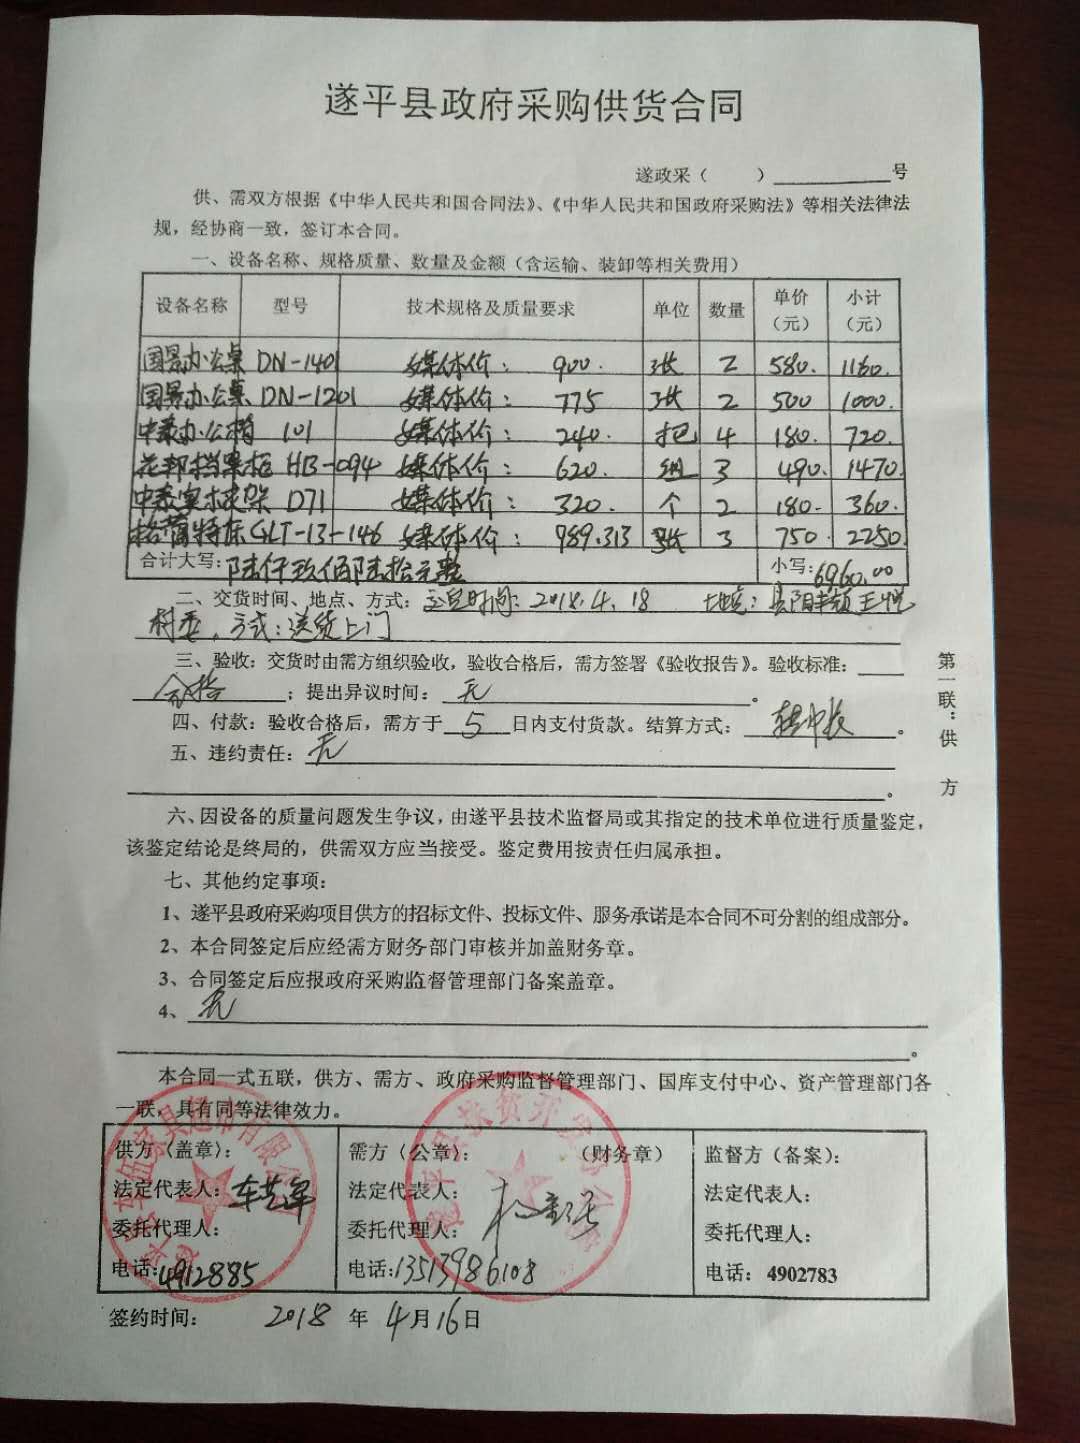 遂平县政府采购供货合同
遂政采（ ）________号
供、需双方根据《中华人民共和国合同法》、《中华人民共和国政府采购法》等相关法律法
规，经协商一致，签订本合同。
一、设备名称、规格质量、数量及金额（含运输、装卸等相关费用）
设备名称 型号 技术规格及质量要求 单位 数量 单价（元） 小计（元）
国景办公桌 DN-1401 媒体价： 900. 张 2 580. 1160.
国景办公桌 DN-1201 媒体价： 775 张 2 500 1000.
中泰办公椅 101 媒体价： 240. 把 4 180. 720.
花邦档案柜 HB-094 媒体价： 620. 组 3 490. 1470.
中泰实木茶架 D71 媒体价： 320. 个 2 180. 360.
格蕾特床 GLT-13-146 媒体价： 989.313 张 3 750. 2250.
合计大写：陆仟玖佰陆拾元整 小写：6960.00
二、交货时间、地点、方式：交货时间：2018.4.18 地点：县阳丰镇王
村委，方式：送货上门
三、验收：交货时由需方组织验收，验收合格后，需方签署《验收报告》。验收标准：
合格；提出异议时间：无。
四、付款：验收合格后，需方于5日内支付货款。结算方式：转账。
五、违约责任：无
。
六、因设备的质量问题发生争议，由遂平县技术监督局或其指定的技术单位进行质量鉴定，
该鉴定结论是终局的，供需双方应当接受。鉴定费用按责任归属承担。
七、其他约定事项：
1、遂平县政府采购项目供方的招标文件、投标文件、服务承诺是本合同不可分割的组成部分。
2、本合同签定后应经需方财务部门审核并加盖财务章。
3、合同签定后应报政府采购监督管理部门备案盖章。
4、无
。
本合同一式五联，供方、需方、政府采购监督管理部门、国库支付中心、资产管理部门各
一联，具有同等法律效力。
供方（盖章）： 需方（公章）： （财务章） 监督方（备案）：
法定代表人： 法定代表人： 法定代表人：
委托代理人： 委托代理人： 委托代理人：
电话：4912885 电话：13513986108 电话：4902783
签约时间： 2018 年 4月16日
第一联：供 方